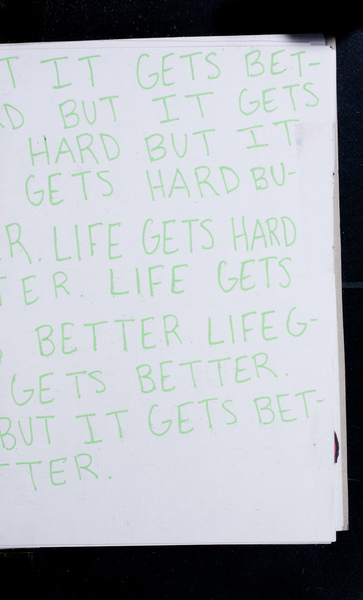 T IT GETS BET-
RD BUT IT GETS
HARD BUT IT
GETS HARD BU-
R. LIFE GETS HARD
TER. LIFE GETS
BETTER. LIFE G-
GETS BETTER.
BUT IT GETS BET-
TTER.